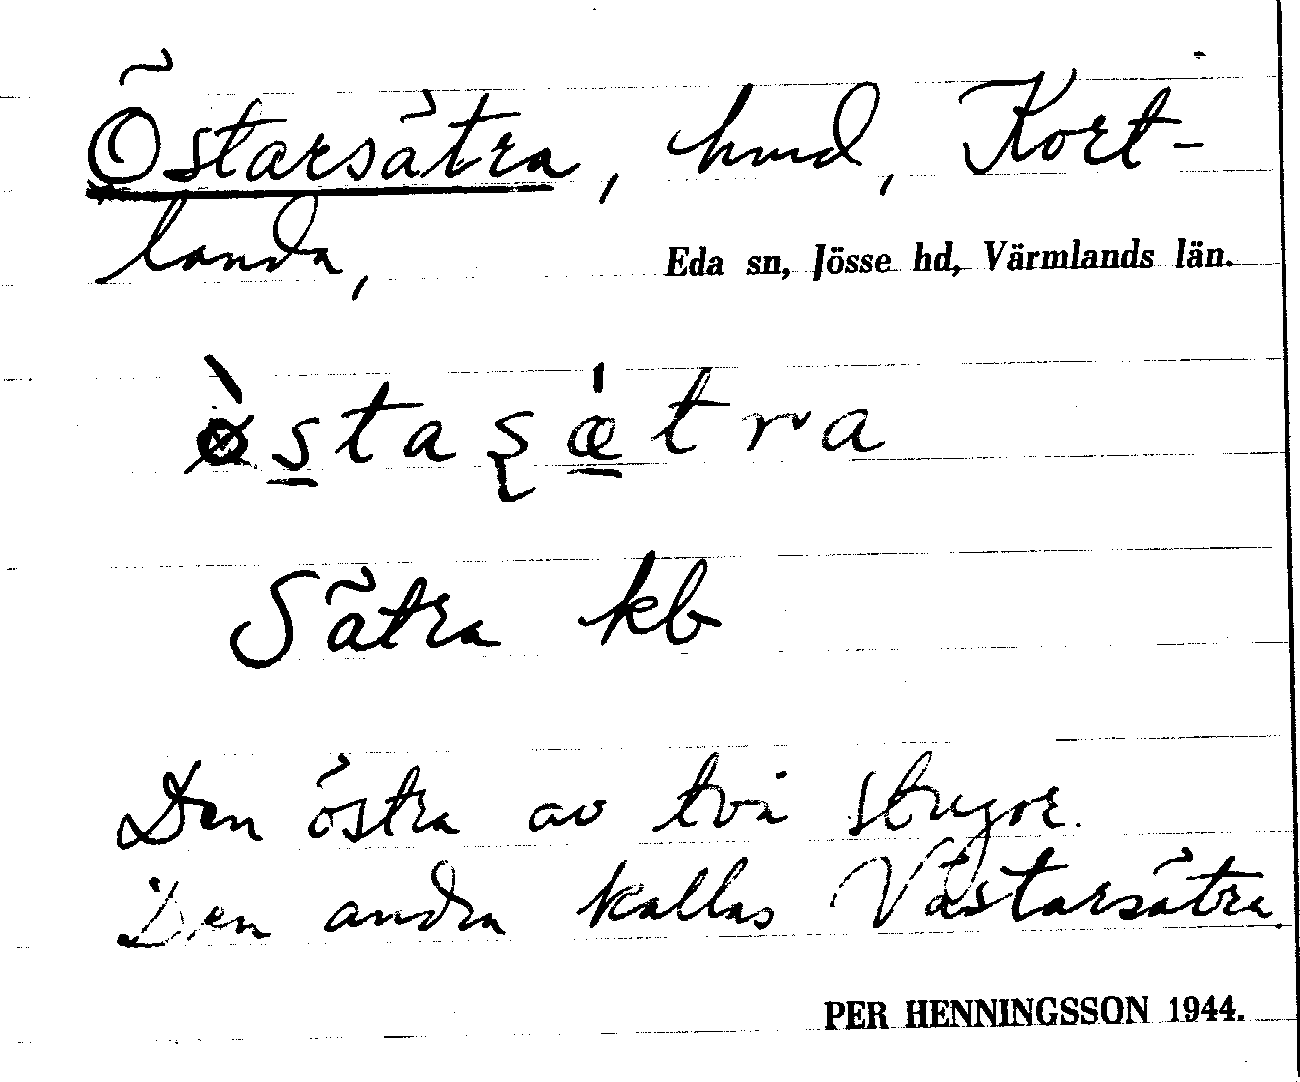 Östarsätra, hmd, Kort-
landa,
Eda sn, Jösse hd, Värmlands län.
ø̀s̲tas̨ǽ̲tra
Sätra kb
Den östra av två stugor.
Den andra kallas Västarsätra.
PER HENNINGSSON 1944.